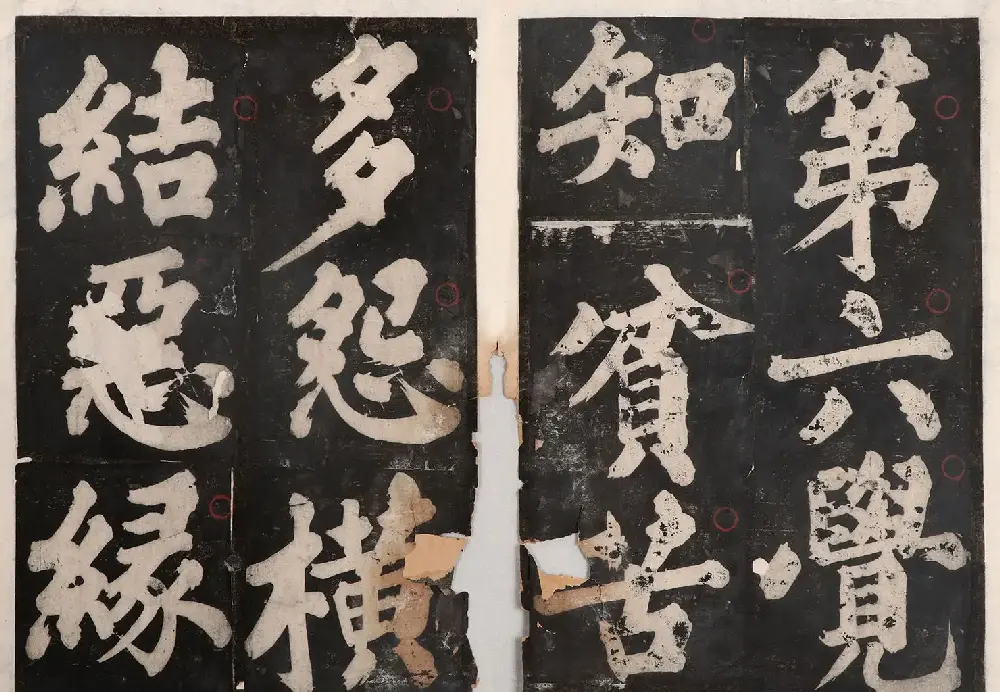 第六覺
知貧苦
多怨橫
結惡緣